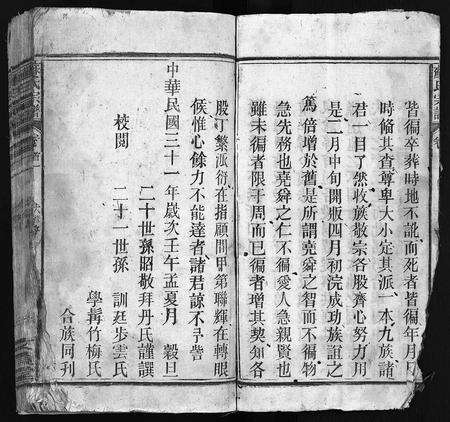 皆徧卒葬時地不詭而死者皆徧年月日
時脩其查尊卑大小定其派一本九族諸
君一目了然收族敬宗各股齊心努力用
是二月中旬開版四月初浣成功族誼之
篤倍增於舊是所謂堯舜之智而不徧物
急先務也堯舜之仁不徧愛人急親賢也
雖未徧者限于周而已徧者增其契知各
股丁繁派衍在指顧間甲第聯輝在轉眼
候惟心餘力不能達者諸君諒不予訾
中華民國三十一年歲次壬午孟夏月 穀旦
二十世孫昭敬拜丹氏謹譔
校閱 二十一世孫 訓廷步雲氏
學騫竹梅氏
合族同刊